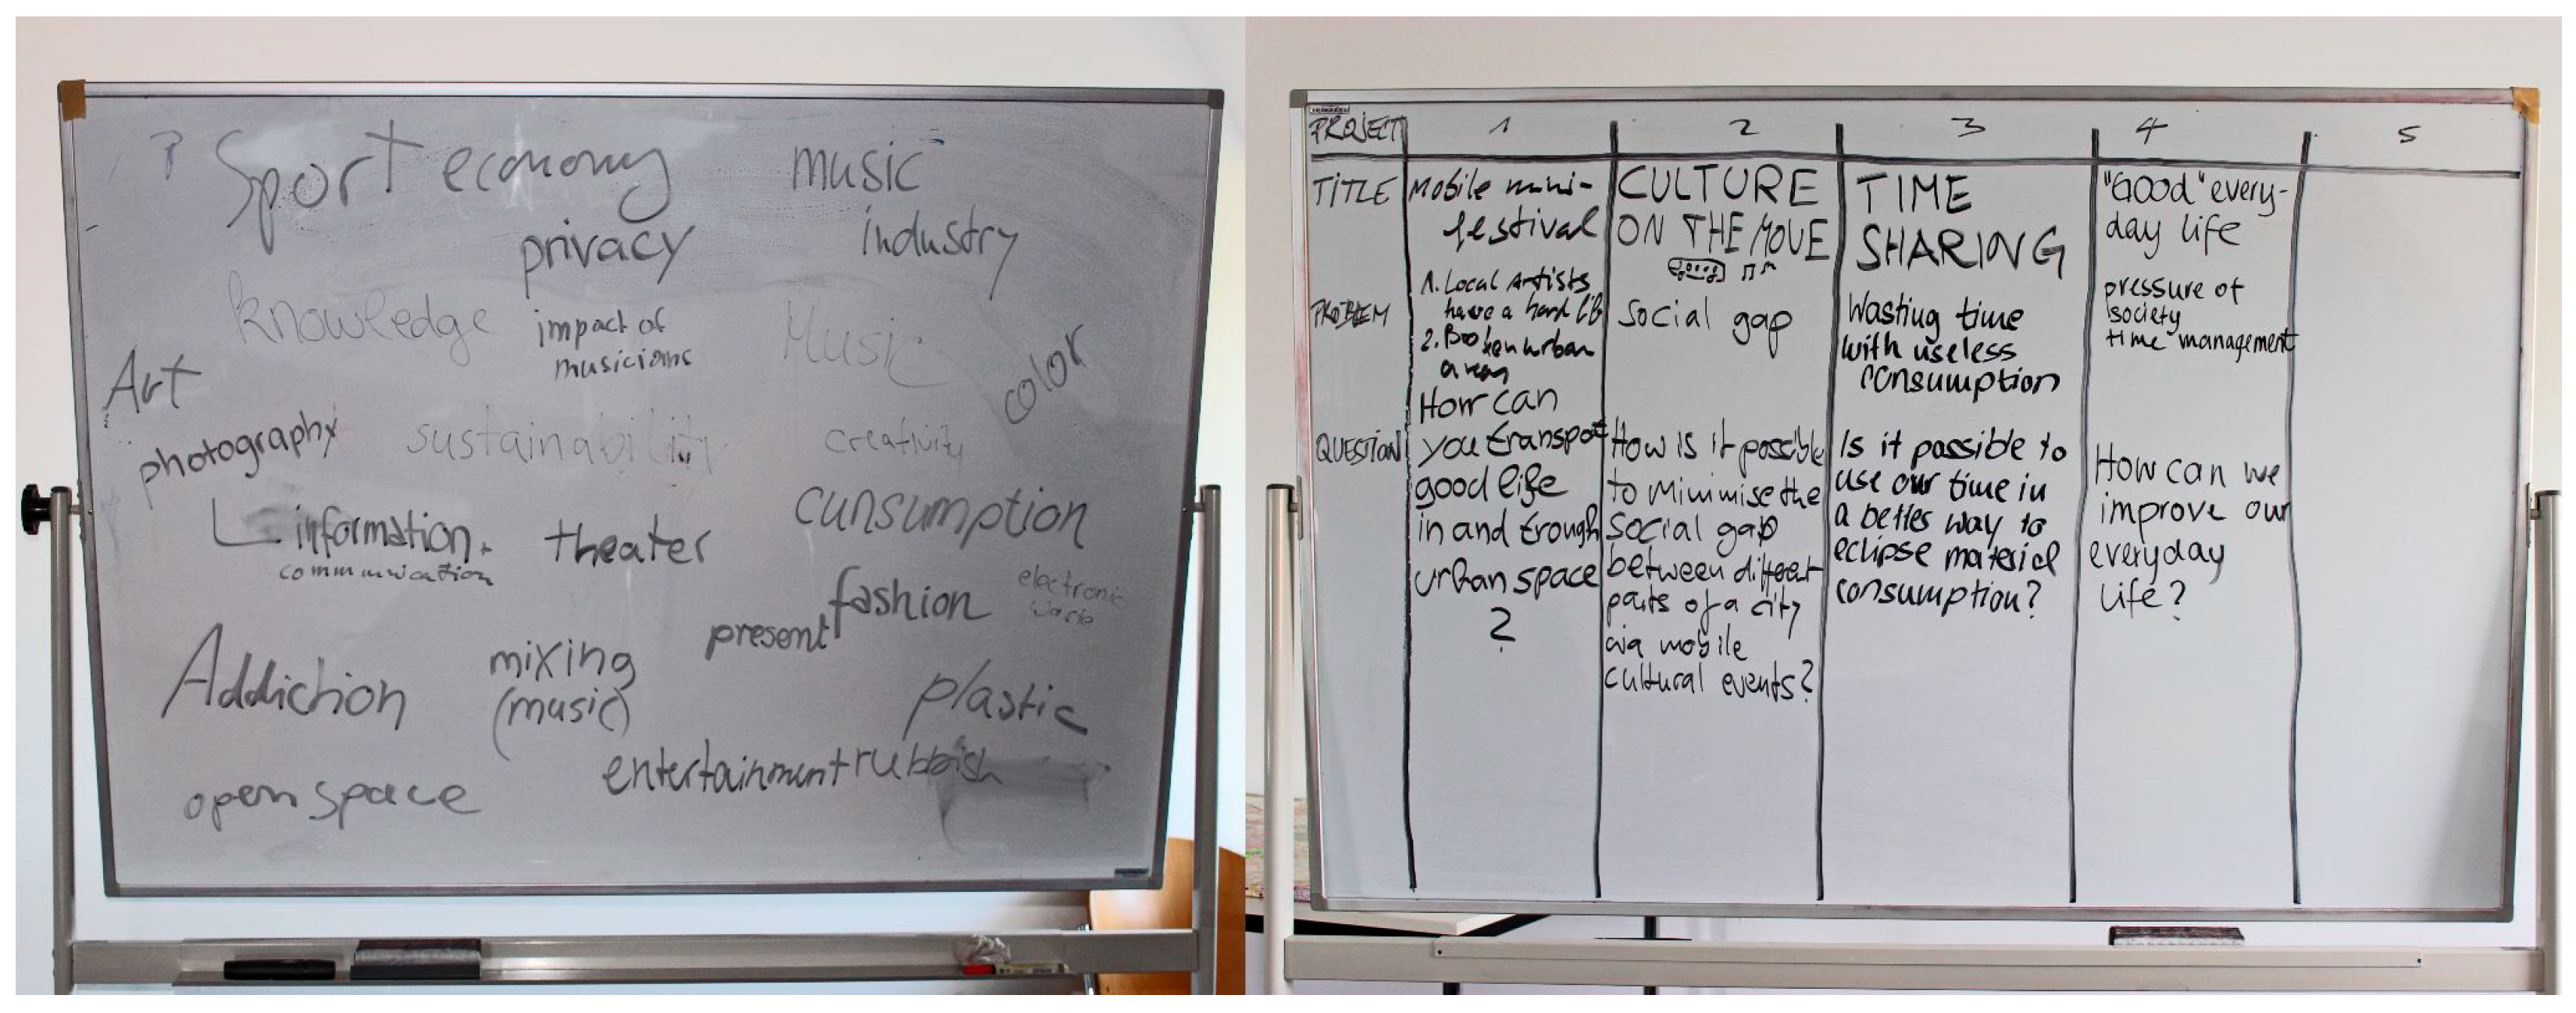 Sport economy
music
industry
privacy
knowledge
impact of
musicians
Music
color
Art
photography
sustainability
creativity
information
communication
theater
cunsumption
fashion
electronic
waste
present
Addiction
mixing
(music)
plastic
entertainment
rubbish
open space
PROJECT 1 2 3 4 5
TITLE
Mobile mini-
festival
CULTURE
ON THE MOVE
TIME
SHARING
"Good" every-
day life
PROBLEM
1. Local Artists
have a hard life
2. Broken urban
areas
Social gap
Wasting time
with useless
consumption
pressure of
society
time management
QUESTION
How can
you transport
good life
in and trough
urban space
?
How is it possible
to minimise the
social gap
between different
parts of a city
via mobile
cultural events?
Is it possible to
use our time in
a better way to
eclipse material
consumption?
How can we
improve our
everyday
life?